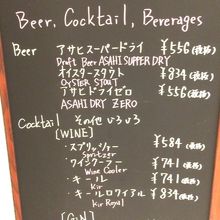 Beer, Cocktail, Beverages
Beer アサヒスーパードライ ¥556(税抜)
Draft Beer ASAHI SUPPER DRY
オイスタースタウト ¥834(税抜)
OYSTER STOUT
アサヒドライゼロ ¥556(税抜)
ASAHI DRY ZERO
Cocktail その他いろいろ
[WINE]
・スプリッツァー ¥584(税抜)
Spritzer
・ワインクーラー ¥741(税抜)
Wine Cooler
・キール ¥741(税抜)
Kir
・キールロワイアル ¥834(税抜)
Kir Royal
[GIN]